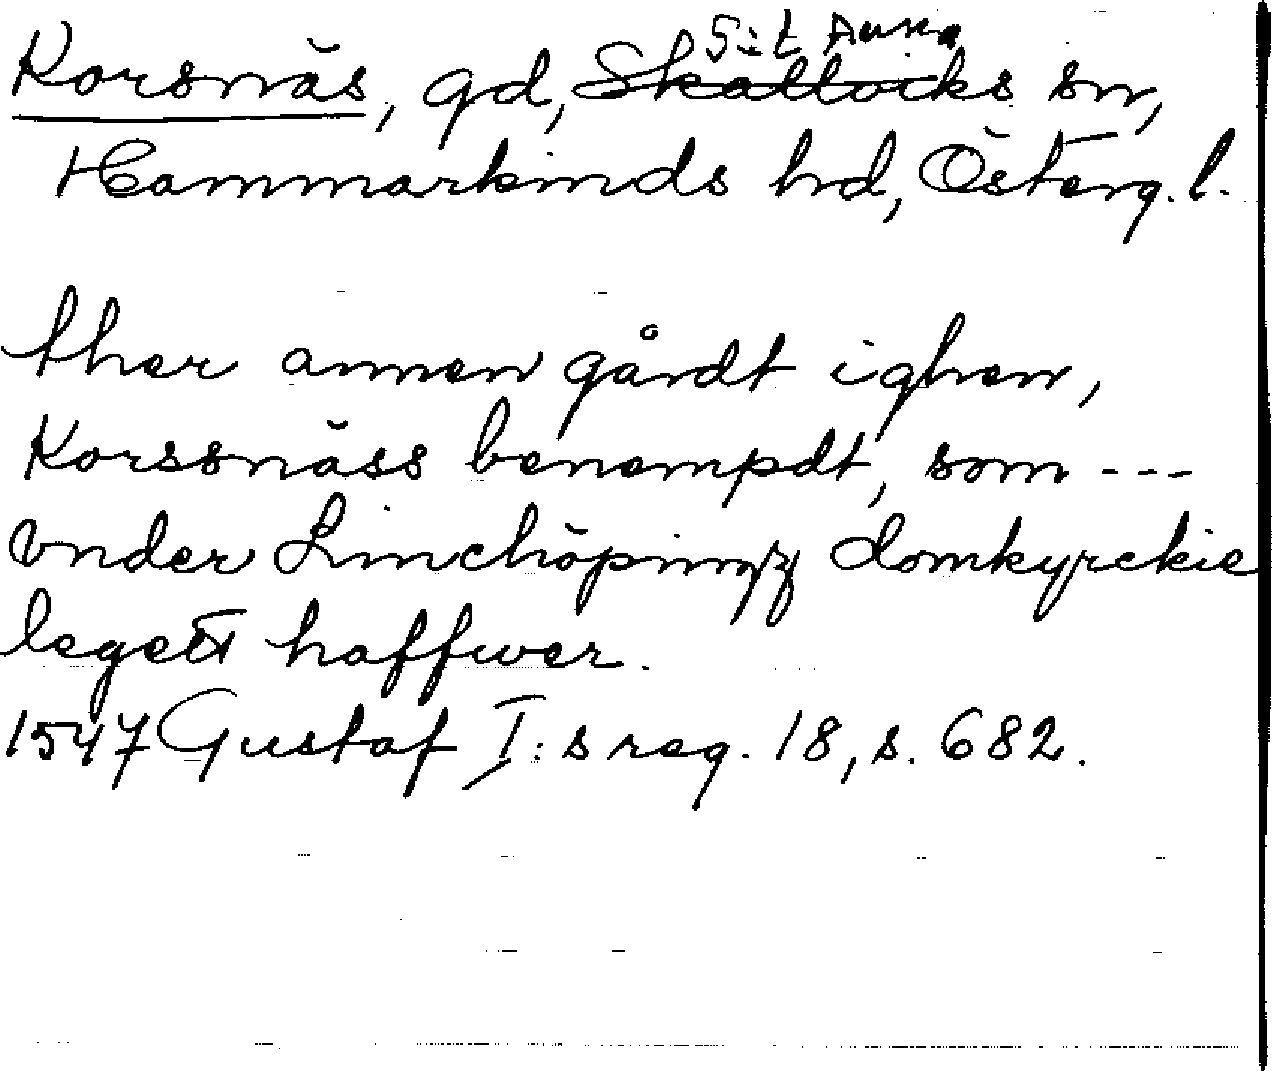 S:t Anna
Korsnäs, gd, Skällviks sn,
Hammarkinds hd, Österg. l.
ther annen gårdt ighen,
Korssnäss benempdt, som ---
vnder Linchöpingz domkyrckie
legett haffwer.
1547 Gustaf I:s reg. 18, s. 682.